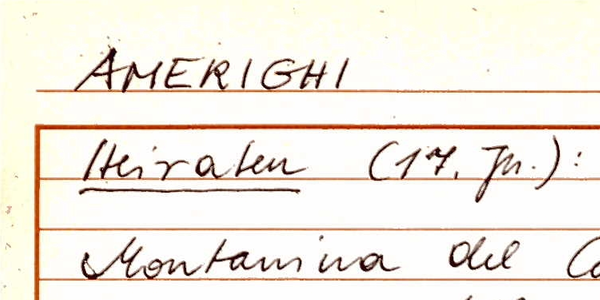 AMERIGHI
Heiraten (17. Jh.):
Montanina del